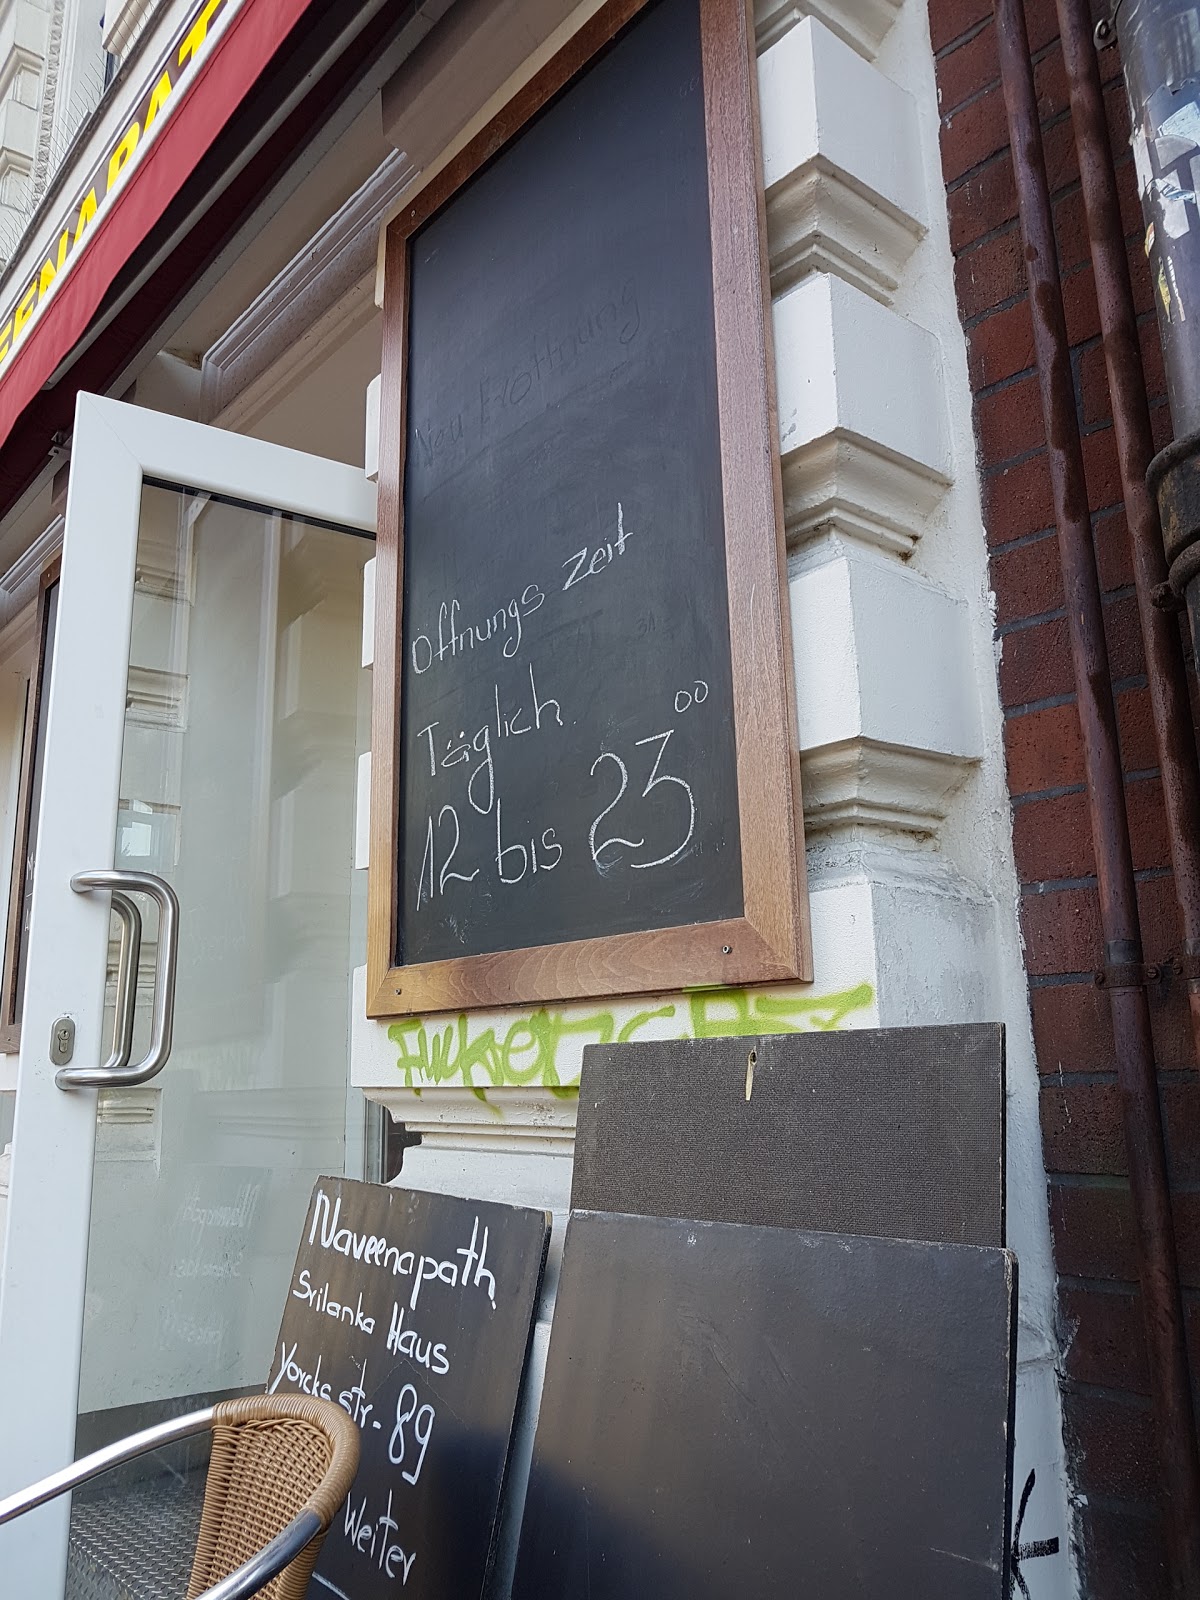 EENAPAT
Neu Eröffnung
Öffnungs zeit
Täglich.
12 bis 23 00
Naveenapath
Srilanka Haus
Yorckstr- 89
Weiter